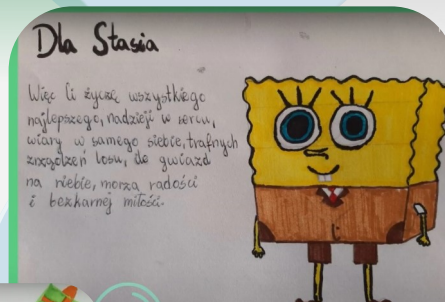 Dla Stasia
Więc Ci życzę wszystkiego
najlepszego, nadzieji w sercu,
wiary w samego siebie, trafnych
zrządzeń losu, ile gwiazd
na niebie, morza radości
i bezkarnej miłości.